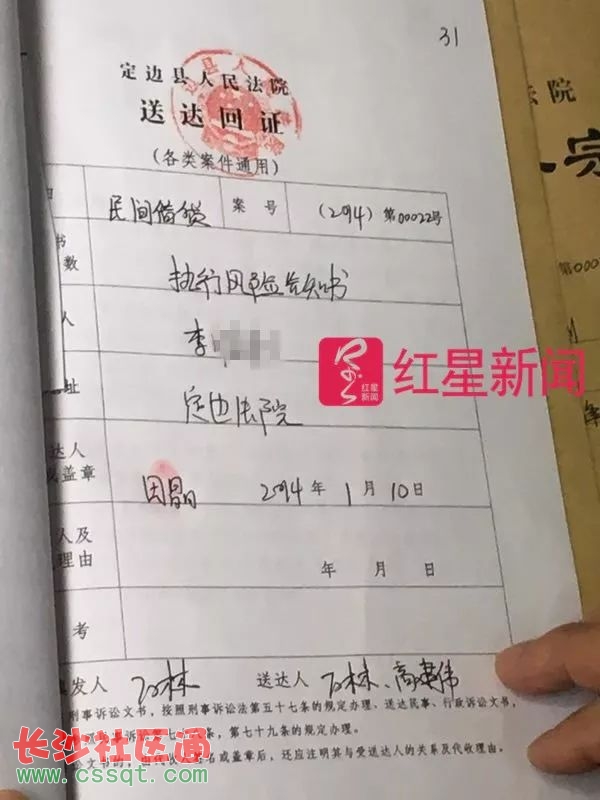 31
定边县人民法院
送达回证
(各类案件通用)
由 民间借贷 案号 (2014)第00022号
书
数 执行风险告知书
人 李
址 定边法院
达人
盖章 2014年1月10日
人及
理由 年 月 日
考
发人 石林 送达人 石林、高建伟
刑事诉讼文书，按照刑事诉讼法第五十七条的规定办理、送达民事、行政诉讼文书，
条，第七十九条的规定办理。
名或盖章后，还应注明其与受送达人的关系及代收理由。
法院
第000
红星新闻
红星
新闻
长沙社区通
www.cssqt.com